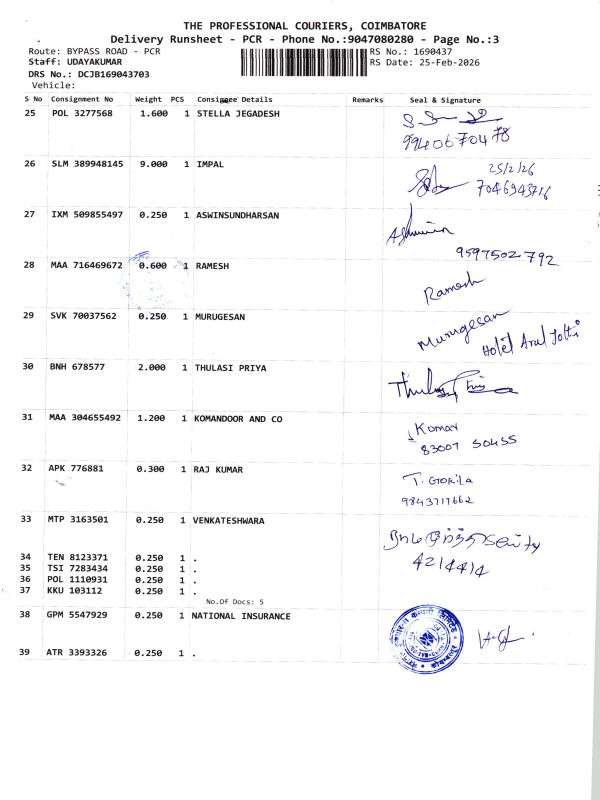 THE PROFESSIONAL COURIERS, COIMBATORE
Delivery Runsheet - PCR - Phone No.:9047080280 - Page No.:3
Route: BYPASS ROAD - PCR
RS No.: 1690437
Staff: UDAYAKUMAR
RS Date: 25-Feb-2026
DRS No.: DCJB169043703
Vehicle:
S No Consignment No Weight PCS Consignee Details Remarks Seal & Signature
25 POL 3277568 1.600 1 STELLA JEGADESH
9940670478
26 SLM 389948145 9.000 1 IMPAL
25/2/26
7046943756
27 IXM 509855497 0.250 1 ASWINSUNDHARSAN
9597502792
28 MAA 716469672 0.600 1 RAMESH
Ramesh
29 SVK 70037562 0.250 1 MURUGESAN
Murugesan
Hotel Arul Jothi
30 BNH 678577 2.000 1 THULASI PRIYA
31 MAA 304655492 1.200 1 KOMANDOOR AND CO
Kumar
83007 50455
32 APK 776881 0.300 1 RAJ KUMAR
T. Gokila
9843717662
33 MTP 3163501 0.250 1 VENKATESHWARA
4214414
34 TEN 8123371 0.250 1 .
35 TSI 7283434 0.250 1 .
36 POL 1110931 0.250 1 .
37 KKU 103112 0.250 1 .
No.Of Docs: 5
38 GPM 5547929 0.250 1 NATIONAL INSURANCE
39 ATR 3393326 0.250 1 .